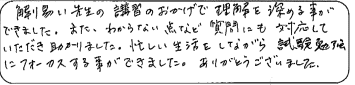 解り易い先生の講習のおかげで理解を深める事が
できました。また、わからない点など質問にも対応して
いただき助かりました。忙しい生活をしながら試験勉強
にフォーカスする事ができました。ありがとうございました。